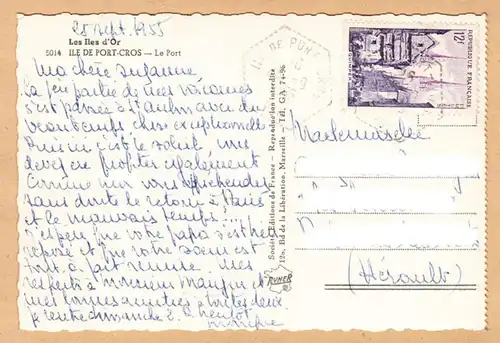 25 sept. 1955
Les Iles d'Or
5014 ILE DE PORT-CROS — Le Port
Ma chère Suzanne
La fin partie de mes vacances
s'est passée à l' avec du
beau temps, chose exceptionnelle.
Ici c'est le soleil, vous
devez en profiter également
Comme moi vous
sans doute le retour à Paris
et le mauvais temps!...
J'espère que votre papa s'est
reposé et que votre sœur est
tout à fait remise. Mes
respects à monsieur et
mes bonnes amitiés à toutes deux
Je rentre dimanche 2. A bientôt
Monique
Société Editions de France — Reproduction interdite
12a, Bd de la Libération, Marseille — Tél. GA 74-96
RUMER
ILE DE POR
12F
REPUBLIQUE FRANÇAISE
POSTES
QUIMPER
Mademoiselle
(Hérault)